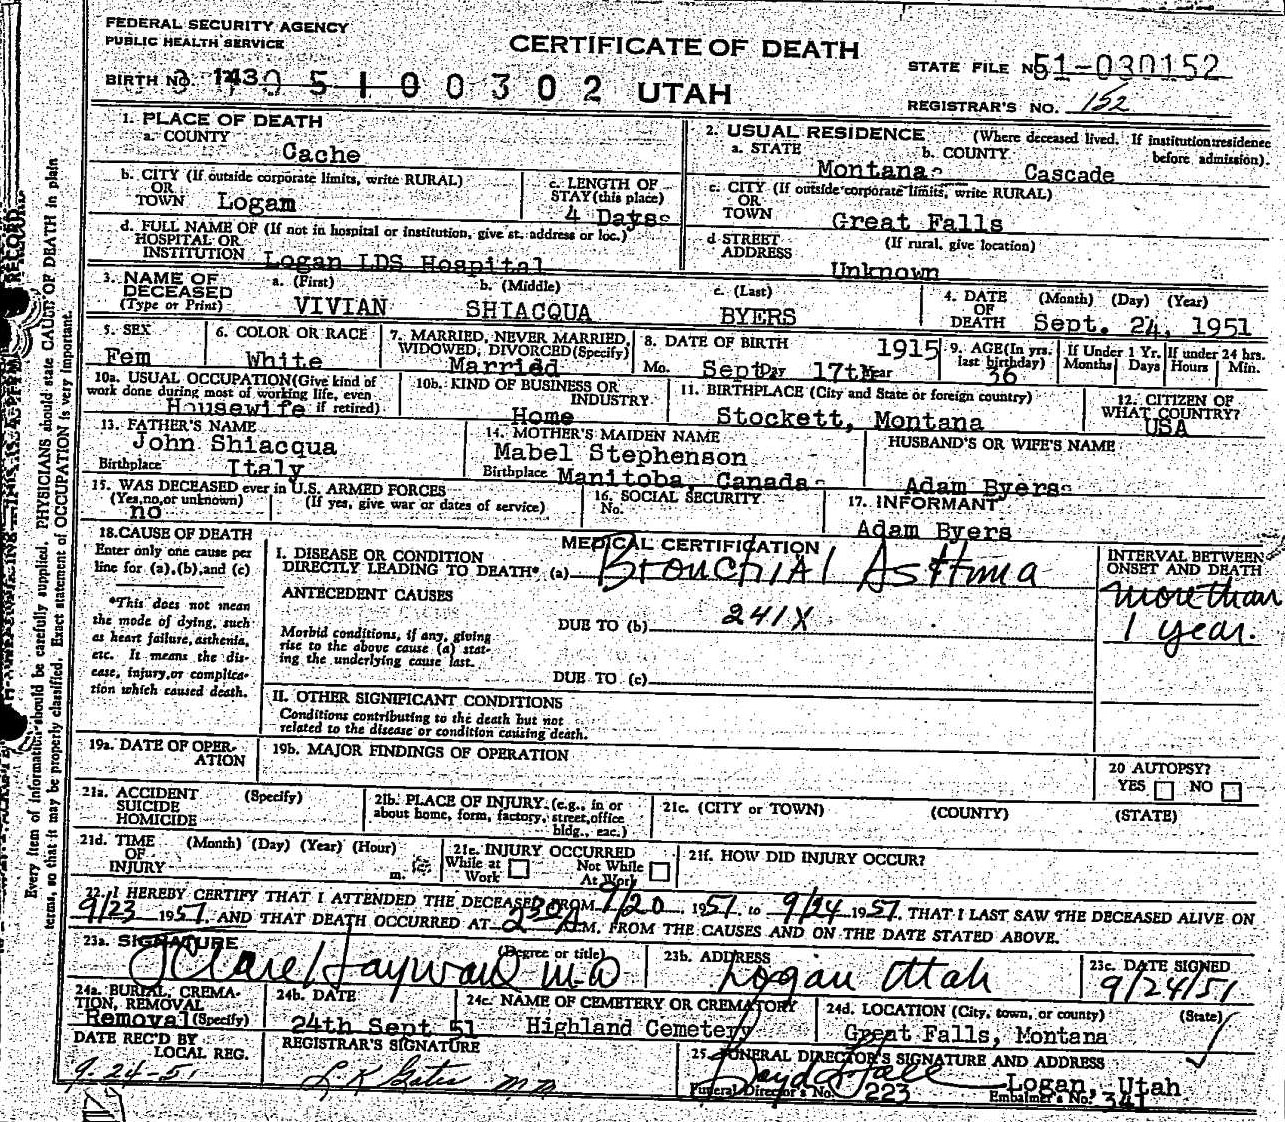 FEDERAL SECURITY AGENCY
PUBLIC HEALTH SERVICE
CERTIFICATE OF DEATH
STATE FILE NO. 51-030152
BIRTH NO. 143 0 5 1 0 0 3 0 2 UTAH
REGISTRAR'S NO. 152
1. PLACE OF DEATH
a. COUNTY
Cache
2. USUAL RESIDENCE (Where deceased lived. If institution: residence before admission).
a. STATE b. COUNTY
Montana Cascade
b. CITY (If outside corporate limits, write RURAL)
OR
TOWN Logan
c. LENGTH OF STAY (this place)
4 Days
c. CITY (If outside corporate limits, write RURAL)
OR
TOWN Great Falls
d. FULL NAME OF (If not in hospital or institution, give st. address or loc.)
HOSPITAL OR
INSTITUTION Logan LDS Hospital
d STREET ADDRESS (If rural, give location)
Unknown
3. NAME OF DECEASED
(Type or Print)
a. (First) b. (Middle) c. (Last)
VIVIAN SHIACQUA BYERS
4. DATE OF DEATH (Month) (Day) (Year)
Sept. 24, 1951
5. SEX
Fem
6. COLOR OR RACE
White
7. MARRIED, NEVER MARRIED, WIDOWED, DIVORCED (Specify)
Married
8. DATE OF BIRTH 1915
Mo. Sept Day 17th Year
9. AGE (In yrs. last birthday)
36
If Under 1 Yr. Months Days
If under 24 hrs. Hours Min.
10a. USUAL OCCUPATION (Give kind of work done during most of working life, even if retired)
Housewife
10b. KIND OF BUSINESS OR INDUSTRY
Home
11. BIRTHPLACE (City and State or foreign country)
Stockett, Montana
12. CITIZEN OF WHAT COUNTRY?
USA
13. FATHER'S NAME
John Shiacqua
Birthplace Italy
14. MOTHER'S MAIDEN NAME
Mabel Stephenson
Birthplace Manitoba, Canada
HUSBAND'S OR WIFE'S NAME
Adam Byers
15. WAS DECEASED ever in U.S. ARMED FORCES
(Yes, no, or unknown) (If yes, give war or dates of service)
no
16. SOCIAL SECURITY No.
17. INFORMANT
Adam Byers
18. CAUSE OF DEATH
Enter only one cause per line for (a), (b), and (c)
*This does not mean the mode of dying, such as heart failure, asthenia, etc. It means the disease, injury, or complication which caused death.
MEDICAL CERTIFICATION
I. DISEASE OR CONDITION
DIRECTLY LEADING TO DEATH* (a) Bronchial Asthma
INTERVAL BETWEEN ONSET AND DEATH
more than
1 year.
ANTECEDENT CAUSES
DUE TO (b) 241X
Morbid conditions, if any, giving rise to the above cause (a) stating the underlying cause last.
DUE TO (c)
II. OTHER SIGNIFICANT CONDITIONS
Conditions contributing to the death but not related to the disease or condition causing death.
19a. DATE OF OPERATION
19b. MAJOR FINDINGS OF OPERATION
20 AUTOPSY?
YES NO
21a. ACCIDENT SUICIDE HOMICIDE (Specify)
21b. PLACE OF INJURY (e.g., in or about home, form, factory, street, office bldg., eac.)
21c. (CITY or TOWN) (COUNTY) (STATE)
21d. TIME OF INJURY (Month) (Day) (Year) (Hour) m.
21e. INJURY OCCURRED
While at Work Not While At Work
21f. HOW DID INJURY OCCUR?
22. I HEREBY CERTIFY THAT I ATTENDED THE DECEASED FROM 9/20, 1951, to 9/24 1951, THAT I LAST SAW THE DECEASED ALIVE ON
9/23 1951, AND THAT DEATH OCCURRED AT 230 A M. FROM THE CAUSES AND ON THE DATE STATED ABOVE.
23a. SIGNATURE (Degree or title)
J Clare Hayward M.D
23b. ADDRESS
Logan Utah
23c. DATE SIGNED
9/24/51
24a. BURIAL, CREMATION, REMOVAL (Specify)
Removal
24b. DATE
24th Sept 51
24c. NAME OF CEMETERY OR CREMATORY
Highland Cemetery
24d. LOCATION (City, town, or county) (State)
Great Falls, Montana
DATE REC'D BY LOCAL REG.
9-24-51
REGISTRAR'S SIGNATURE
25. FUNERAL DIRECTOR'S SIGNATURE AND ADDRESS
Logan, Utah
Funeral Director's No. 223 Embalmer's No. 341
Every item of information should be carefully supplied. PHYSICIANS should state CAUSE OF DEATH in plain
terms, so that it may be properly classified. Exact statement of OCCUPATION is very important.